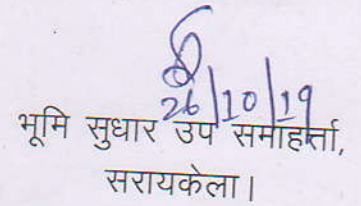 26/10/19
भूमि सुधार उप समाहर्ता,
सरायकेला।